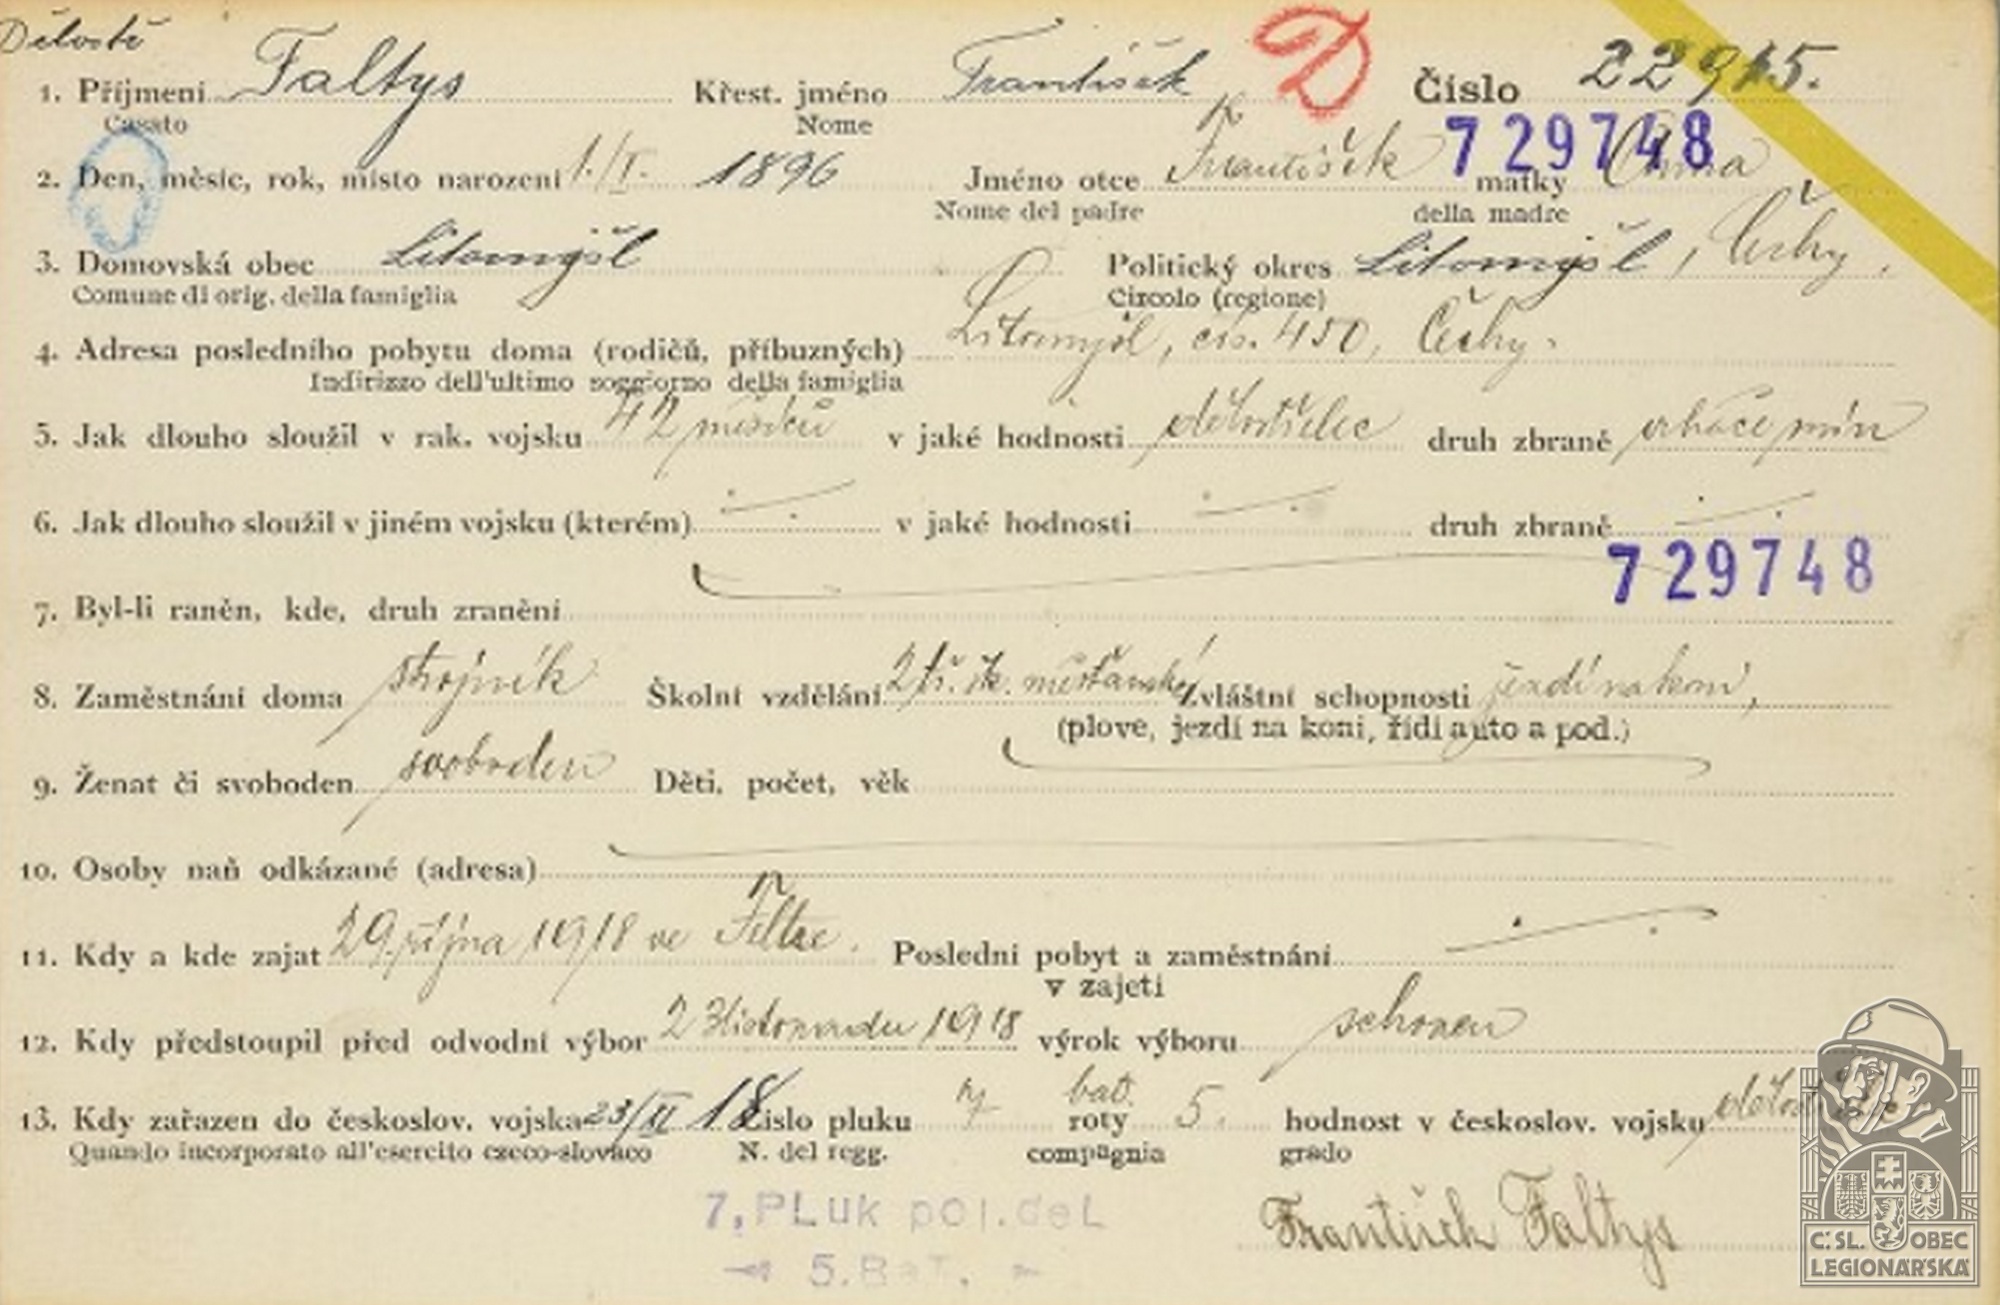 Dělostř
1. Příjmení Faltys Křest. jméno František D Číslo 22915.
Casato Nome
729748
2. Den, měsíc, rok, místo narození 1./I. 1896 Jméno otce František matky Anna
Nome del padre della madre
3. Domovská obec Litomyšl Politický okres Litomyšl, Čechy.
Comune di orig. della famiglia Circolo (regione)
4. Adresa posledního pobytu doma (rodičů, příbuzných) Litomyšl, čís. 450, Čechy.
Indirizzo dell'ultimo soggiorno della famiglia
5. Jak dlouho sloužil v rak. vojsku 42 měsíců v jaké hodnosti dělostřelec druh zbraně vrhače min
6. Jak dlouho sloužil v jiném vojsku (kterém) v jaké hodnosti druh zbraně
729748
7. Byl-li raněn, kde, druh zranění
8. Zaměstnání doma strojník Školní vzdělání 2 tř. šk. měšťanské Zvláštní schopnosti jezdí na koni,
(plove, jezdí na koni, řídí auto a pod.)
9. Ženat či svoboden svoboden Děti, počet, věk
10. Osoby naň odkázané (adresa)
11. Kdy a kde zajat 29. října 1918 ve Feltre. Poslední pobyt a zaměstnání
v zajetí
12. Kdy předstoupil před odvodní výbor 23 listopadu 1918 výrok výboru schopen
13. Kdy zařazen do českoslov. vojska 23/XI 18 Číslo pluku 7 bat. roty 5. hodnost v českoslov. vojsku
Quando incorporato all'esercito czeco-slovaco N. del regg. compagnia grado
7. PLuk pol. deL
5. BaT.
František Faltys
Č. SL. OBEC
LEGIONÁŘSKÁ